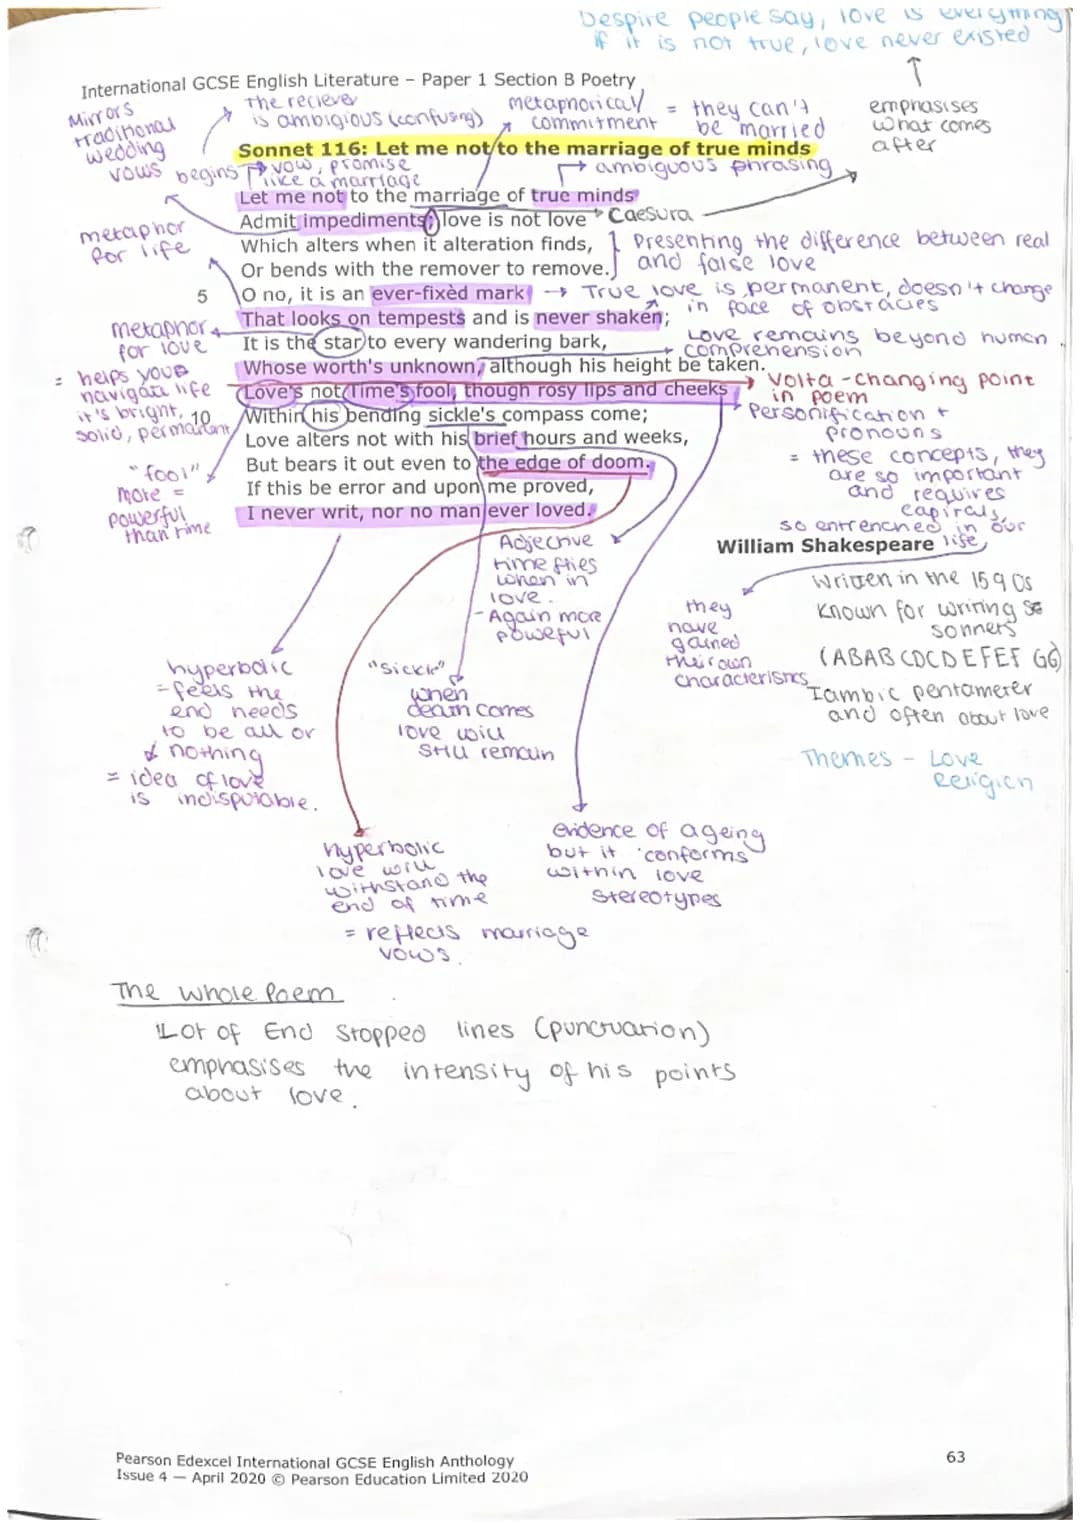 Despire people say, love is everything
if it is not true, love never existed
International GCSE English Literature – Paper 1 Section B Poetry
Mirrors
traditional
wedding
vows
the reciever
is ambigious (confusing)
metaphorical/
commitment
= they can't
be married
emphasises
what comes
after
Sonnet 116: Let me not to the marriage of true minds
begins
vow, promise
like a marriage
ambiguous phrasing
Let me not to the marriage of true minds
Admit impediments; love is not love
Caesura
Which alters when it alteration finds,
Or bends with the remover to remove.
Presenting the difference between real
and false love
metaphor
for life
5
O no, it is an ever-fixèd mark
True love is permanent, doesn't change
in face of obstacles
That looks on tempests and is never shaken;
It is the star to every wandering bark,
Love remains beyond human
comprehension
metaphor
for love
= helps you
navigate life
it's bright,
solid, permanant
Whose worth's unknown, although his height be taken.
Love's not Time's fool, though rosy lips and cheeks
Volta - changing point
in poem
10
Within his bending sickle's compass come;
Personification +
pronouns
= these concepts, they
are so important
and requires
capitals,
so entrenched in our
life
Love alters not with his brief hours and weeks,
But bears it out even to the edge of doom.
If this be error and upon me proved,
I never writ, nor no man ever loved.
"fool"
more =
powerful
than time
William Shakespeare
Adjective
time flies
when in
love.
- Again more
poweful
they
have
gained
their own
characteristics
Written in the 1590s
Known for writing
sonnets
(ABAB CDCD EFEF GG)
Iambic pentameter
and often about love
Themes - Love
Religion
hyperbolic
= feels the
end needs
to be all or
nothing
= idea of love
is indisputable.
"sickle"
when
death comes
love will
still remain
hyperbolic
love will
withstand the
end of time
= reflects marriage
vows.
evidence of ageing
but it 'conforms'
within love
stereotypes
The whole Poem
Lot of End stopped lines (punctuation)
emphasises the intensity of his points
about love.
Pearson Edexcel International GCSE English Anthology
Issue 4 — April 2020 © Pearson Education Limited 2020
63